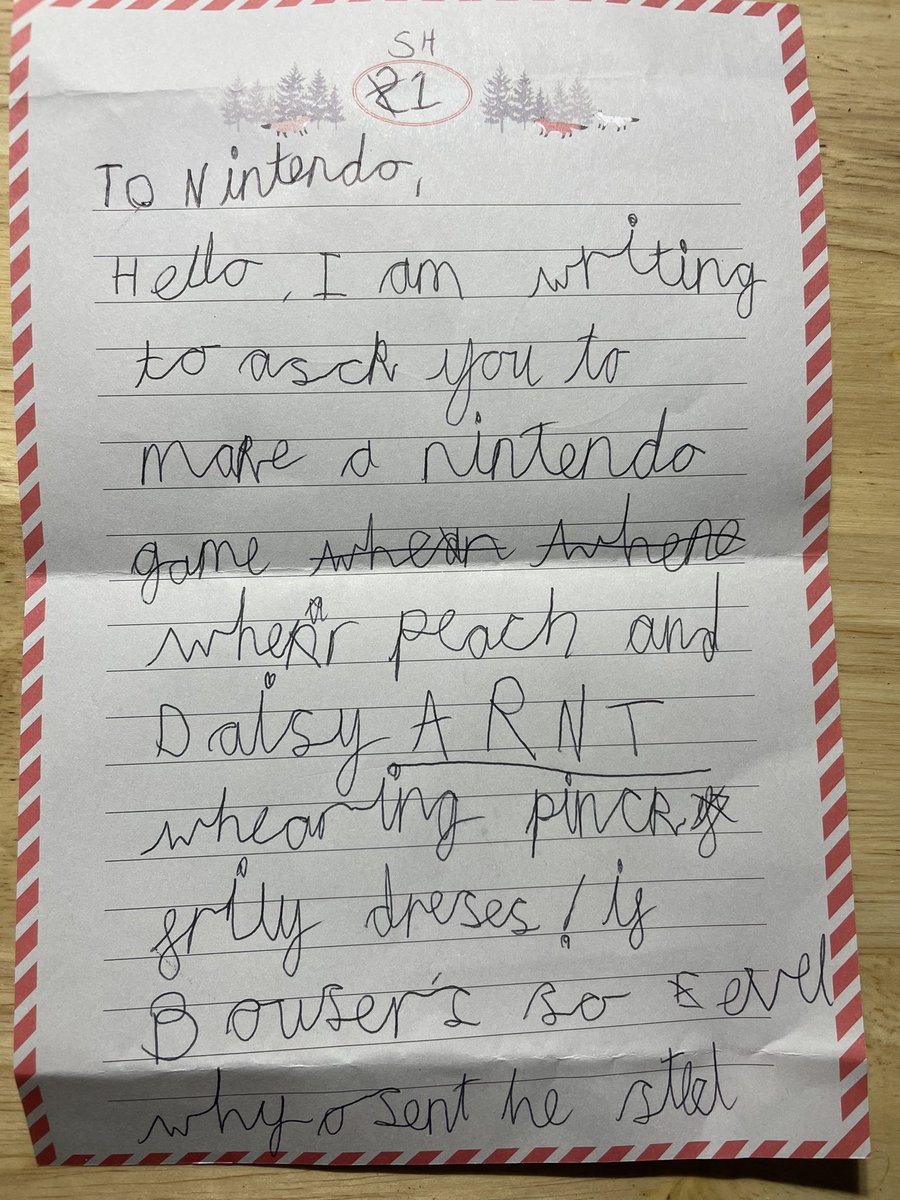 SH
1
To Nintendo,
Hello, I am writing
to asck you to
make a nintendo
game
whear peach and
Daisy ARNT
whearing pinck
frilly dreses! if
Bowser's so evel
why osent he steel